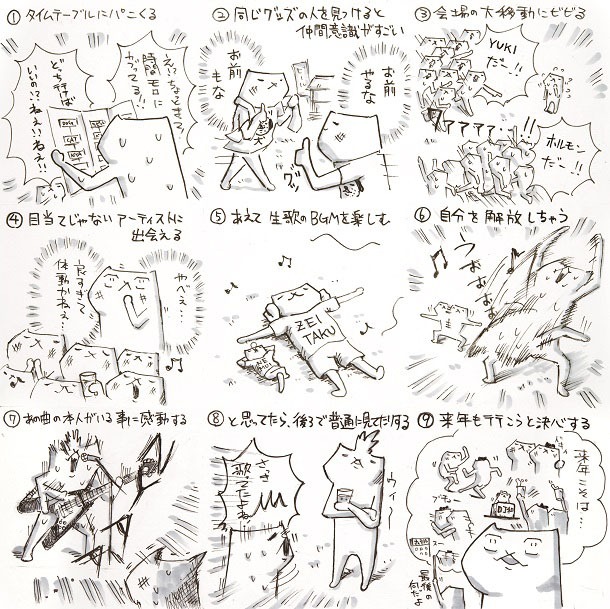 ① タイムテーブルにパニくる
え!?なにとぞ!
時間モロに
かぶってる!!
どち行けば
いいの!?ねぇ!!ねぇ!!
② 同じグッズの人を見つけると
仲間意識がすごい
お前
やるな
お前
もな
グッ
③ 会場の大移動にビビる
YUKI
だー!!
ワアアアア…!!
ホルモン
だー!!
④ 目当てじゃないアーティストに
出会える
やべぇ…
良すぎて
体動かねぇ…
⑤ あえて生歌のBGMを楽しむ
ZEI
TAKU
⑥ 自分を解放しちゃう
うおおおお
⑦ あの曲の本人がいる事に感動する
⑧ と思ってたら、後ろで普通に見てたりする
さっき
歌ってたよね…
ウィー
⑨ 来年も行こうと決心する
来年こそは…
最後の
何だよ